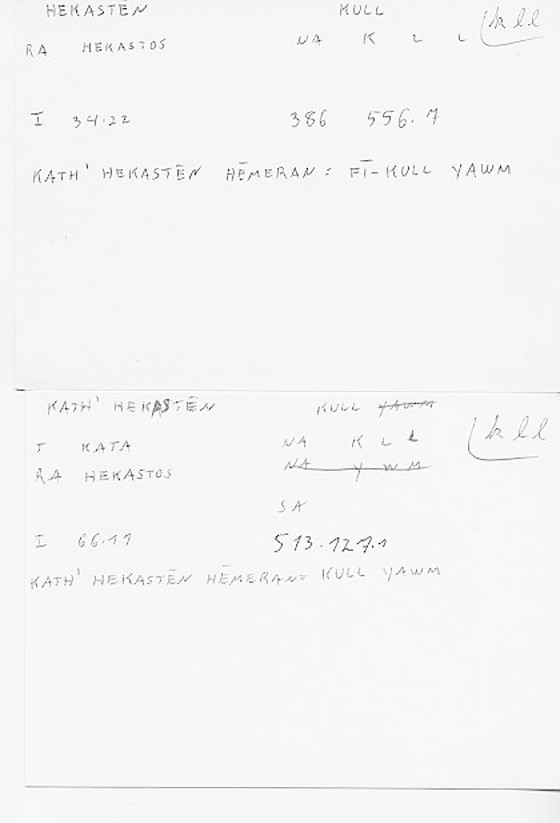 HEKASTĒN KULL
RA HEKASTOS NA K L L kll
I 34.22 386 556.7
KATH' HEKASTĒN HĒMERAN = FĪ-KULL YAWM
KATH' HEKASTĒN KULL YAWM
T KATA NA K L L kll
RA HEKASTOS NA Y W M
SA
I 66.11 513.127.1
KATH' HEKASTĒN HĒMERAN = KULL YAWM